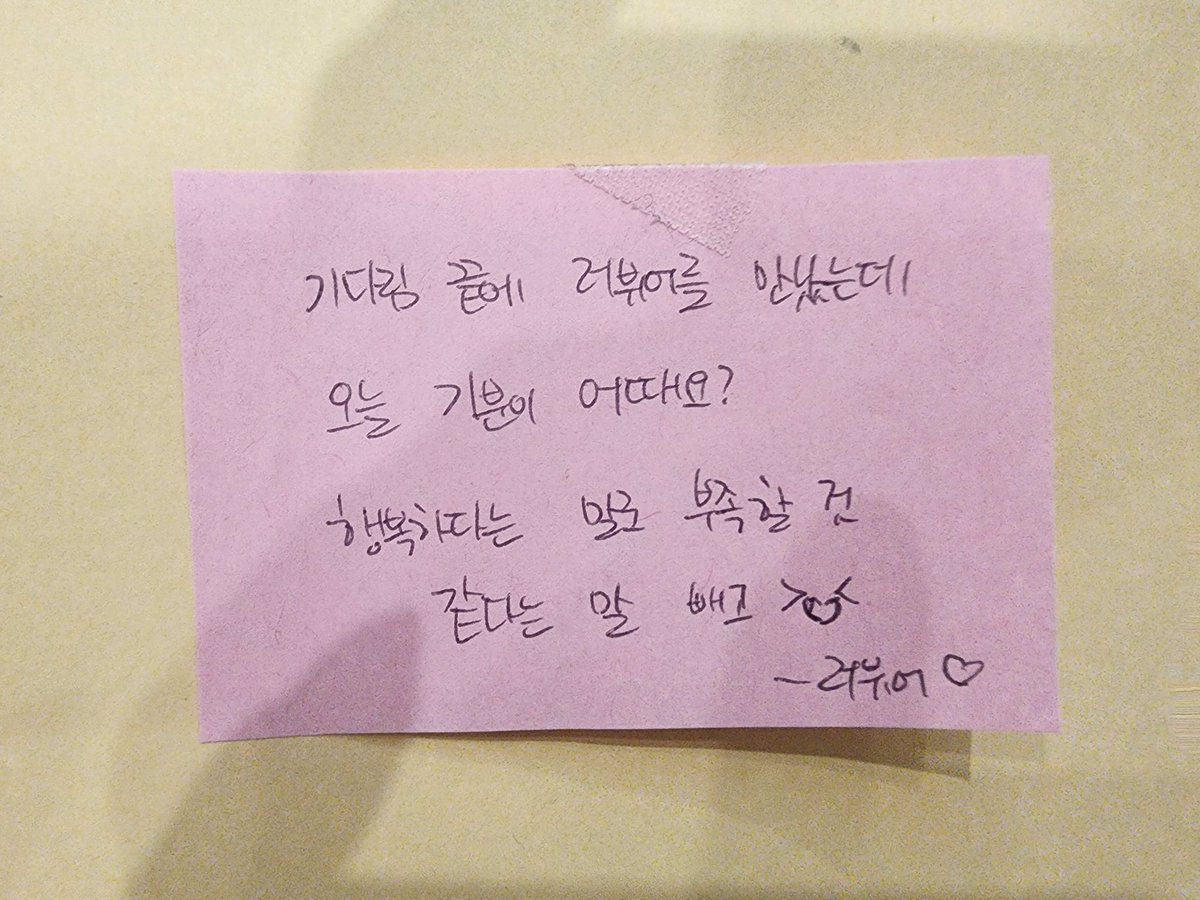 기다림 끝에 러뷰어를 만났는데
오늘 기분이 어때요?
행복하다는 말로 부족할 것
같다는 말 빼고 >♡<
-러뷰어 ♡